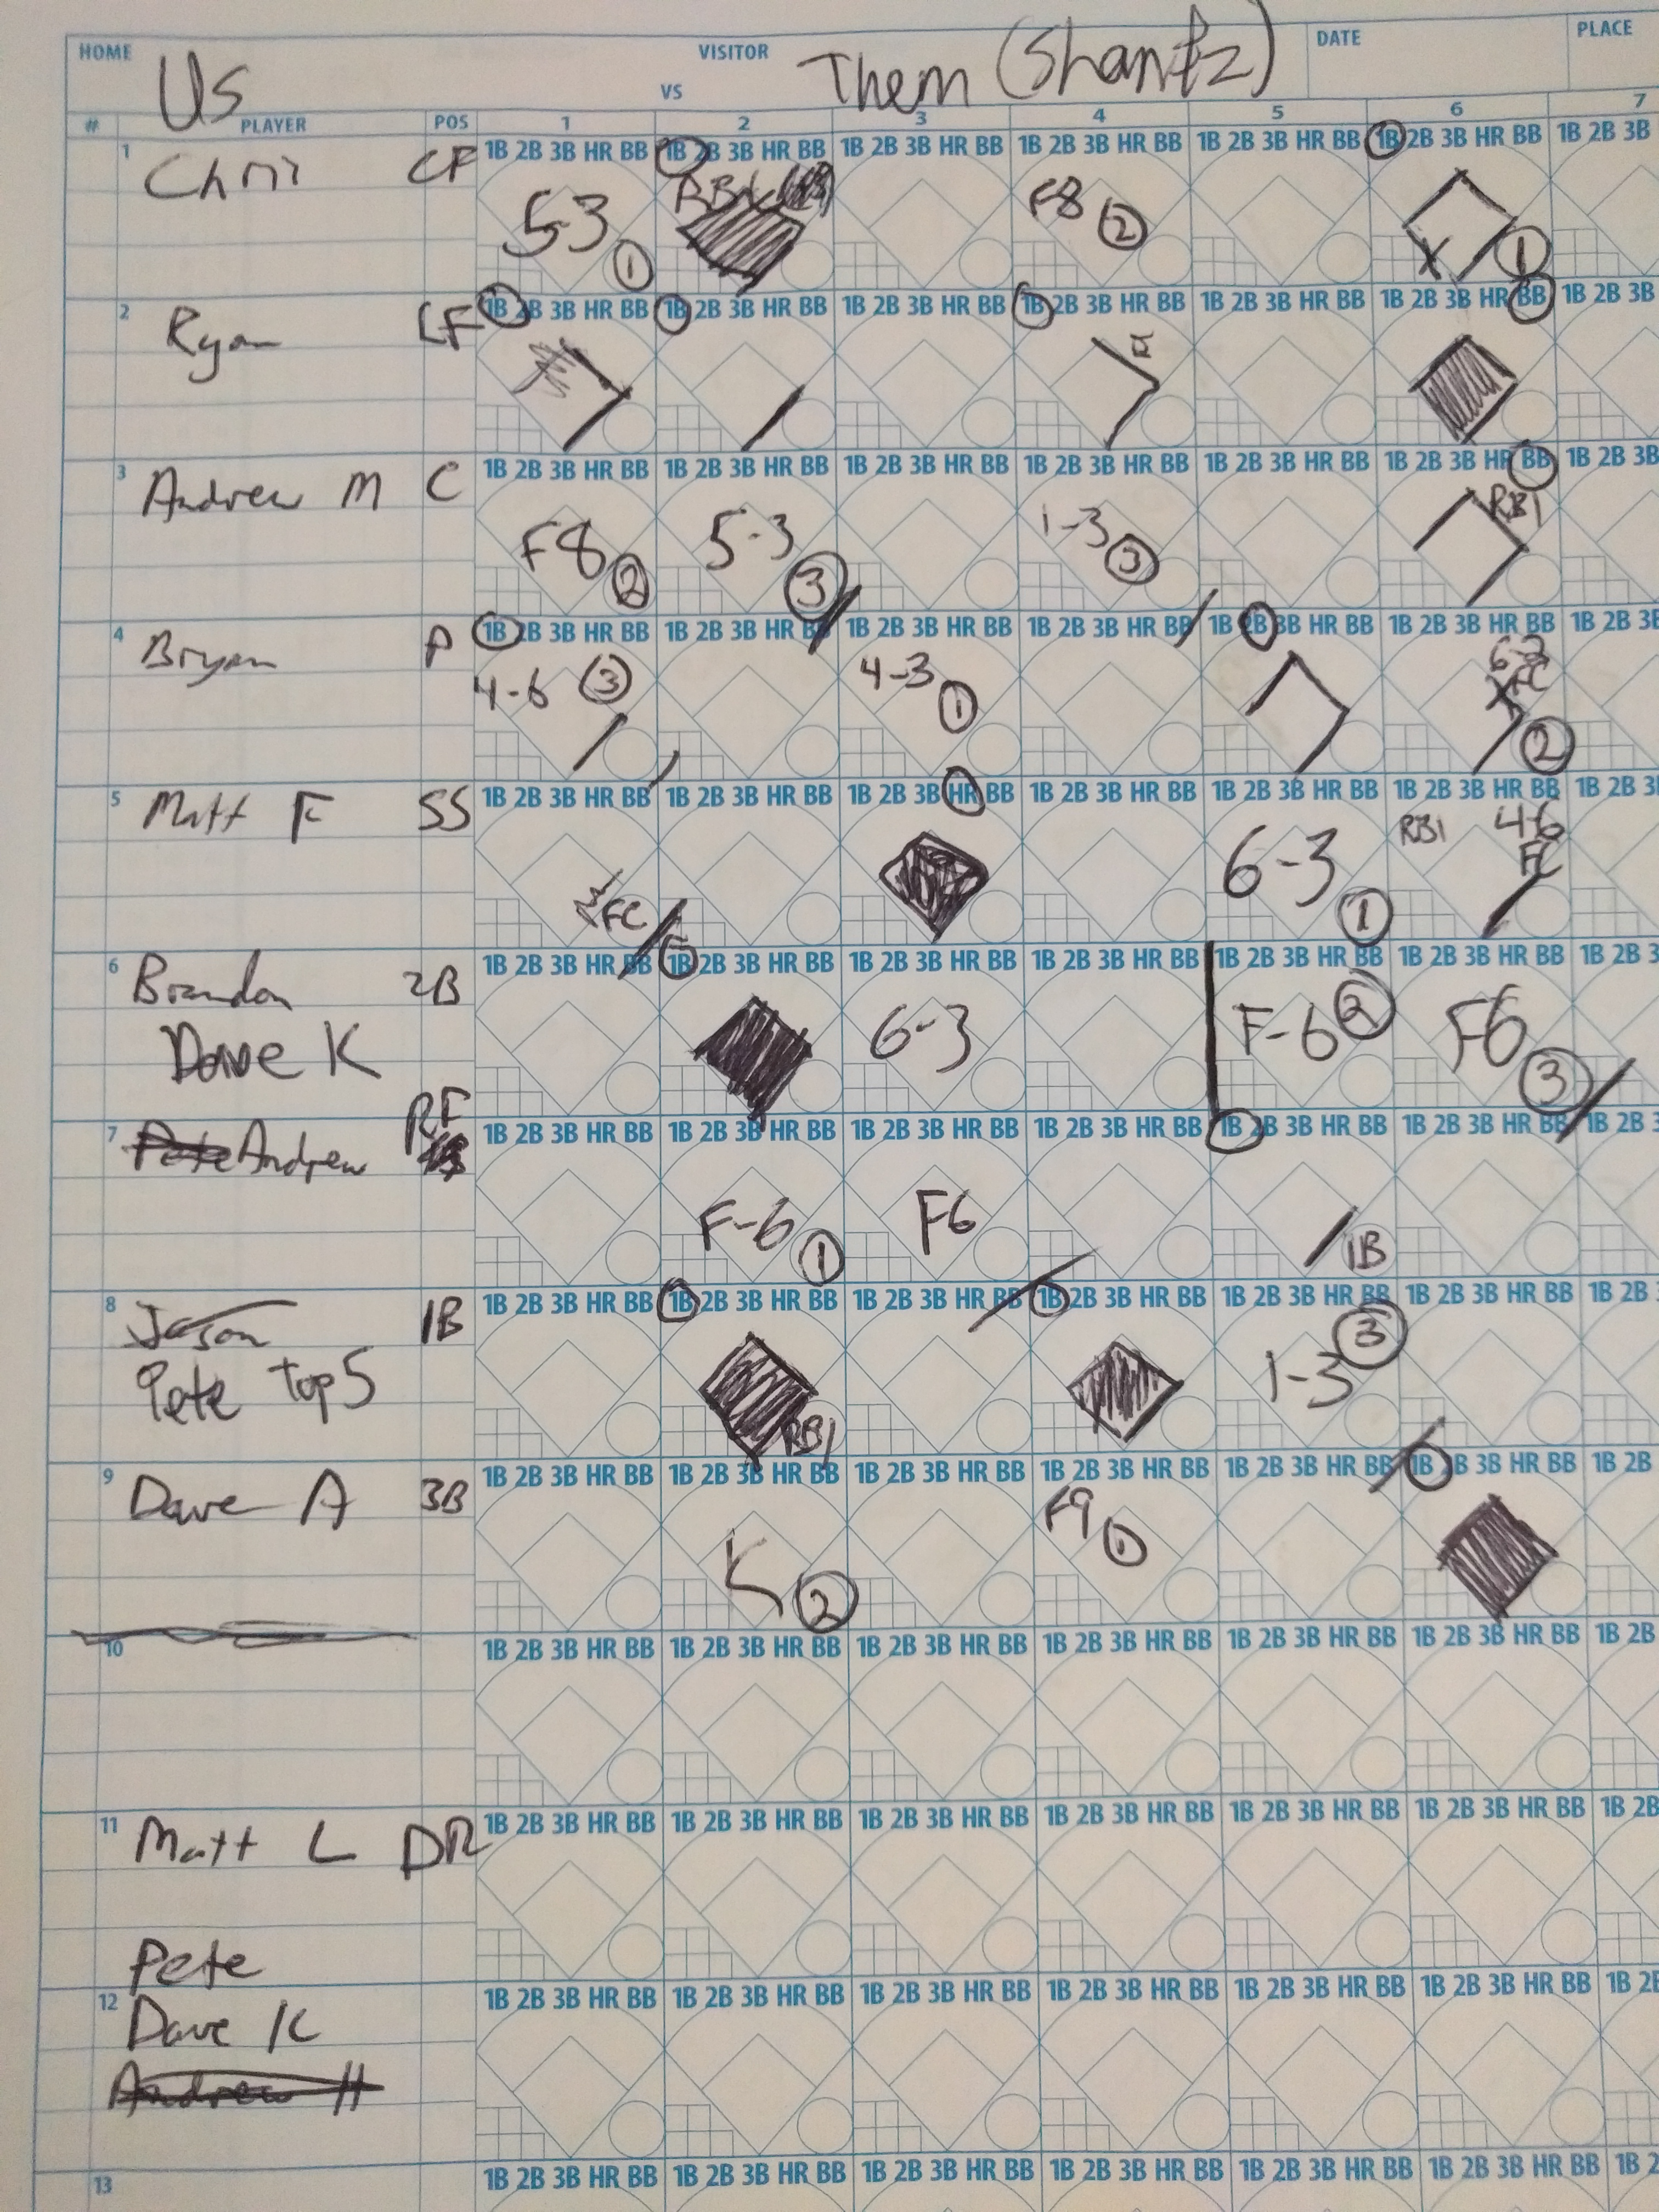 HOME VISITOR DATE PLACE
Us VS Them (Shantz)
# PLAYER POS 1 2 3 4 5 6 7
1 1B 2B 3B HR BB 1B 2B 3B HR BB 1B 2B 3B HR BB 1B 2B 3B HR BB 1B 2B 3B HR BB 1B 2B 3B HR BB 1B 2B 3B
Chris CF 5-3 1 RBI F8 2 X 1
2 1B 2B 3B HR BB 1B 2B 3B HR BB 1B 2B 3B HR BB 1B 2B 3B HR BB 1B 2B 3B HR BB 1B 2B 3B HR BB 1B 2B 3B
Ryan LF
3 1B 2B 3B HR BB 1B 2B 3B HR BB 1B 2B 3B HR BB 1B 2B 3B HR BB 1B 2B 3B HR BB 1B 2B 3B HR BB 1B 2B 3B
Andrew M C F8 2 5-3 3 1-3 3 RBI
4 1B 2B 3B HR BB 1B 2B 3B HR BB 1B 2B 3B HR BB 1B 2B 3B HR BB 1B 2B 3B HR BB 1B 2B 3B HR BB 1B 2B 3B
Bryan P 4-6 3 4-3 1 6-2 FC 2
5 1B 2B 3B HR BB 1B 2B 3B HR BB 1B 2B 3B HR BB 1B 2B 3B HR BB 1B 2B 3B HR BB 1B 2B 3B HR BB 1B 2B 3
Matt F SS FC 6-3 1 RBI 4-6 FC
6 1B 2B 3B HR BB 1B 2B 3B HR BB 1B 2B 3B HR BB 1B 2B 3B HR BB 1B 2B 3B HR BB 1B 2B 3B HR BB 1B 2B 3
Brandon 2B 6-3 F-6 2 F6 3
Dave K
7 1B 2B 3B HR BB 1B 2B 3B HR BB 1B 2B 3B HR BB 1B 2B 3B HR BB 1B 2B 3B HR BB 1B 2B 3B HR BB 1B 2B 3
Pete Andrew RF F-6 1 F6 1B
8 1B 2B 3B HR BB 1B 2B 3B HR BB 1B 2B 3B HR BB 1B 2B 3B HR BB 1B 2B 3B HR BB 1B 2B 3B HR BB 1B 2B
Jason 1B RBI 1-3 3
Pete Top 5
9 1B 2B 3B HR BB 1B 2B 3B HR BB 1B 2B 3B HR BB 1B 2B 3B HR BB 1B 2B 3B HR BB 1B 2B 3B HR BB 1B 2B
Dave A 3B K 2 F9 1
10 1B 2B 3B HR BB 1B 2B 3B HR BB 1B 2B 3B HR BB 1B 2B 3B HR BB 1B 2B 3B HR BB 1B 2B 3B HR BB 1B 2B
11 1B 2B 3B HR BB 1B 2B 3B HR BB 1B 2B 3B HR BB 1B 2B 3B HR BB 1B 2B 3B HR BB 1B 2B 3B HR BB 1B 2B
Matt L DR
Pete
12 1B 2B 3B HR BB 1B 2B 3B HR BB 1B 2B 3B HR BB 1B 2B 3B HR BB 1B 2B 3B HR BB 1B 2B 3B HR BB 1B 2B
Dave K
Andrew H
13 1B 2B 3B HR BB 1B 2B 3B HR BB 1B 2B 3B HR BB 1B 2B 3B HR BB 1B 2B 3B HR BB 1B 2B 3B HR BB 1B 2